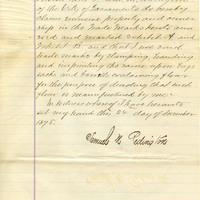 of the City of Sacramento do hereby
claim exclusive property and owner
ship in the Trade Marks hereto ann
exed and marked Exhibit A and
Exhibit B and that I use said
trade marks by stamping, branding
and imprinting the same upon bags
sacks and barrels containing flour
for the purpose of denoting that such
flour is manufactured by me.
In witness whereof I have hereunto
set my hand this 2d day of December
1875.
Samuel H